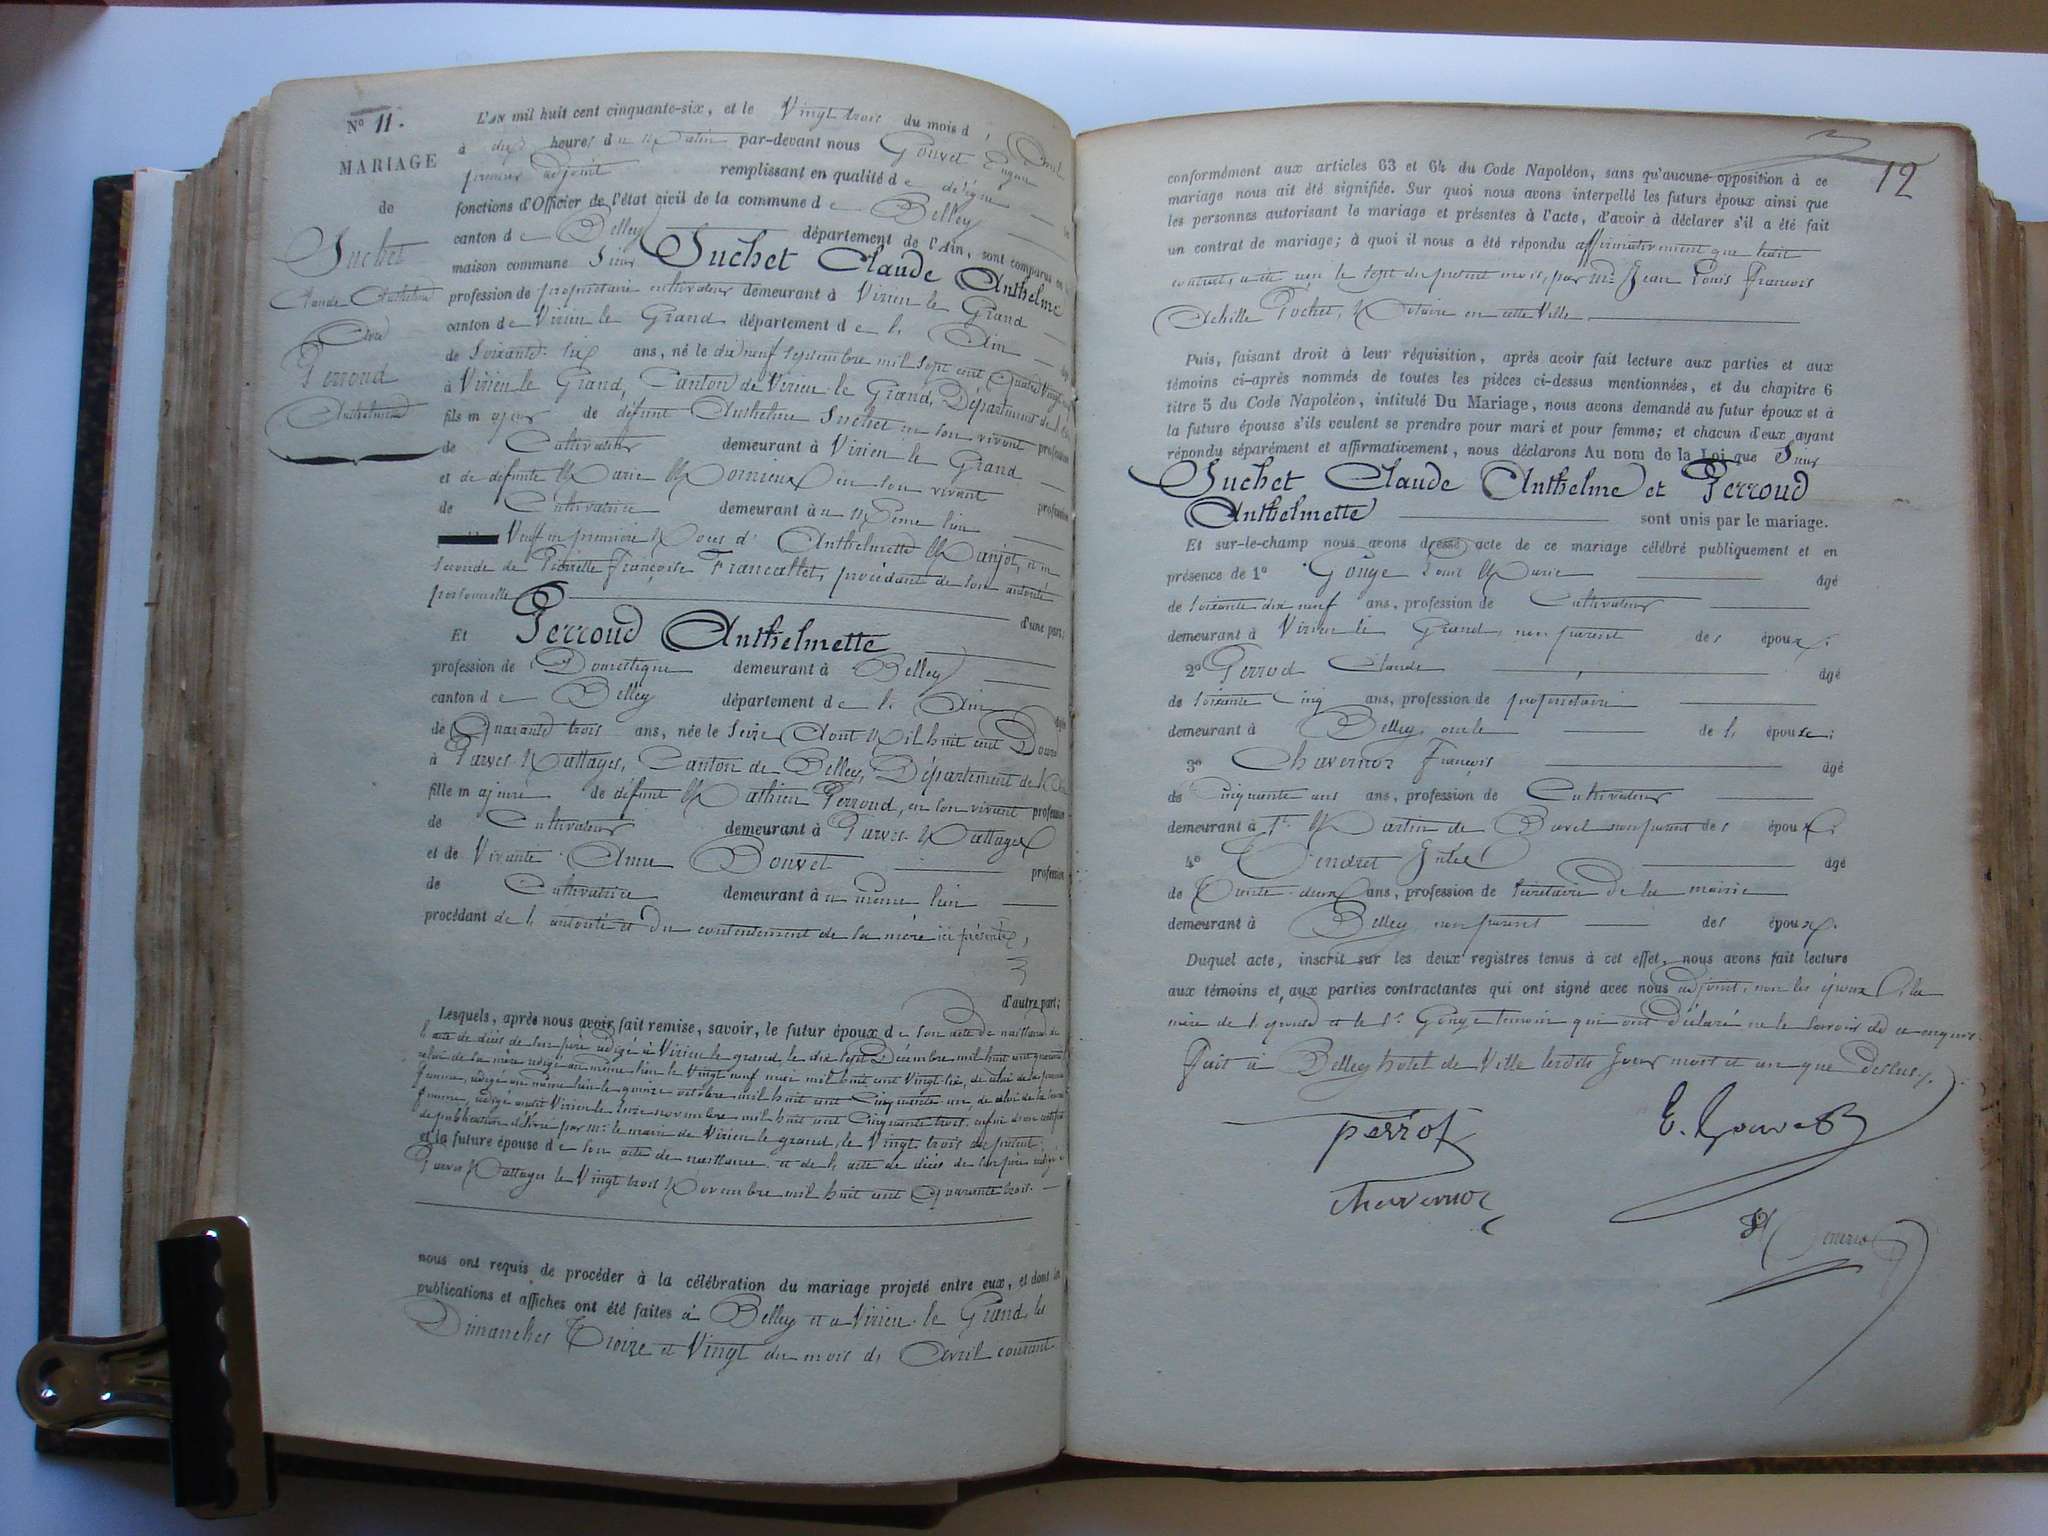 N° 11.
MARIAGE
de
Suchet
Claude Anthelme
Avec
Perroud
Anthelmette
L'AN mil huit cent cinquante-six, et le Vingt trois du mois d'Avril
à dix heures du Matin par-devant nous Gouvet Eugène
premier adjoint remplissant en qualité de délégué les
fonctions d'Officier de l'état civil de la commune de Belley
canton de Belley département de l'Ain, sont comparus en la
maison commune Sieur Suchet Claude Anthelme
profession de propriétaire cultivateur demeurant à Virieu le Grand
canton de Virieu le Grand département de l'Ain âgé
de Soixante six ans, né le dix neuf Septembre mil Sept cent Quatre Vingt neuf
à Virieu le Grand, Canton de Virieu le Grand, Département de l'Ain
fils majeur de défunt Anthelme Suchet en son vivant profession
de Cultivateur demeurant à Virieu le Grand
et de défunte Marie en son vivant profession
de Cultivatrice demeurant au Même lieu
Veuf en première Noces d'Anthelmette Manjot, et en
seconde de Pierrette Françoise Francallet, procédant de son autorité
personnelle d'une part;
Et Perroud Anthelmette
profession de Domestique demeurant à Belley
canton de Belley département de l'Ain âgée
de Quarante trois ans, née le Seize Aout Mil huit cent Douze
à Parves-Nattages, Canton de Belley, Département de l'Ain
fille majeure de défunt Mathieu Perroud, en son vivant profession
de Cultivateur demeurant à Parves-Nattages
et de Vivante Anne Bouvet profession
de Cultivatrice demeurant au même lieu
procédant de l'autorité et du consentement de sa mère ici présente,
d'autre part;
Lesquels, après nous avoir fait remise, savoir, le futur époux de son acte de naissance de
l'acte de décès de son père rédigé à Virieu le grand le dix sept Décembre mil huit cent quarante
celui de sa mère rédigé au même lieu le Vingt neuf mai mil huit cent Vingt-six, de celui de sa première
femme, rédigé au même lieu le quinze octobre mil huit cent Cinquante un, de celui de sa seconde
femme, rédigé audit Virieu le onze novembre mil huit cent Cinquante trois, enfin d'un certificat
de publication délivré par Mr le maire de Virieu le grand, le Vingt trois du présent;
et la future épouse de son acte de naissance et de l'acte de décès de son père rédigé à
Parves Nattages le Vingt trois Novembre mil huit cent Quarante trois.
nous ont requis de procéder à la célébration du mariage projeté entre eux, et dont les
publications et affiches ont été faites à Belley et à Virieu-le Grand, les
Dimanches Treize et Vingt du mois d'Avril courant
12
conformément aux articles 63 et 64 du Code Napoléon, sans qu'aucune opposition à ce
mariage nous ait été signifiée. Sur quoi nous avons interpellé les futurs époux ainsi que
les personnes autorisant le mariage et présentes à l'acte, d'avoir à déclarer s'il a été fait
un contrat de mariage; à quoi il nous a été répondu affirmativement que trait
contrat, a été reçu le sept du présent mois, par Me Jean Louis François
Achille Pochet, Notaire en cette Ville
Puis, faisant droit à leur réquisition, après avoir fait lecture aux parties et aux
témoins ci-après nommés de toutes les pièces ci-dessus mentionnées, et du chapitre 6
titre 5 du Code Napoléon, intitulé Du Mariage, nous avons demandé au futur époux et à
la future épouse s'ils veulent se prendre pour mari et pour femme; et chacun d'eux ayant
répondu séparément et affirmativement, nous déclarons Au nom de la Loi que Sieur
Suchet Claude Anthelme et Perroud
Anthelmette sont unis par le mariage.
Et sur-le-champ nous avons dressé acte de ce mariage célébré publiquement et en
présence de 1° Gouge Louis Marie âgé
de Soixante dix neuf ans, profession de Cultivateur
demeurant à Virieu le Grand, non parent des époux;
2° Perrod Claude âgé
de soixante Cinq ans, profession de propriétaire
demeurant à Belley, oncle de l'épouse;
3° Chavernoz François âgé
de Cinquante ans ans, profession de Cultivateur
demeurant à St Martin de Bavel non parent des époux;
4° Jules âgé
de Trente-deux ans, profession de Secrétaire de la mairie
demeurant à Belley non parent des époux.
Duquel acte, inscrit sur les deux registres tenus à cet effet, nous avons fait lecture
aux témoins et aux parties contractantes qui ont signé avec nous adjoint, non les époux, la
mère de l'épouse et le Sr Gouge témoin qui ont déclaré ne le savoir de ce enquis.
Fait à Belley hotel de Ville lesdits Jour mois et an que dessus.
perrot
E. Gouvet
chavernoz